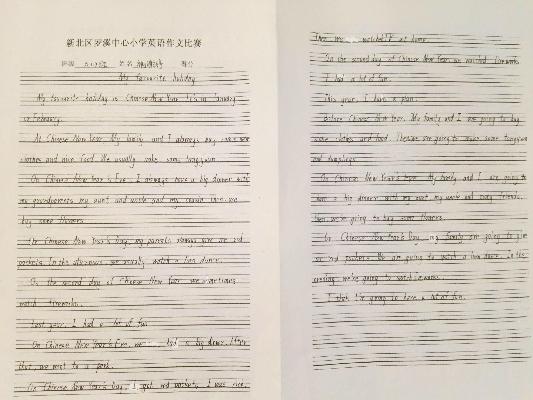 新北区罗溪中心小学英语作文比赛
班级 姓名 得分
My favourite holiday
My favourite holiday is Chinese New Year. It's in January
or February.
At Chinese New Year, My family and I always buy some new
clothes and nice food. We usually make some tangyuan
On Chinese New Year's Eve, I always have a big dinner with
my grandparents, my aunt and uncle and my cousin. Then, we
buy some flowers.
On Chinese New Year's Day, my parents always give me red
packets. In the afternoon, we usually watch a lion dance.
On the second day of Chinese New Year, we sometimes
watch fireworks.
Last year, I had a lot of fun.
On Chinese New Year's Eve, we had a big dinner. After
that, we went to a park.
On Chinese New Year's Day, I got red packets. I was nice.
Then we watched at home.
On the second day of Chinese New Year, we watched fireworks.
I had a lot of fun.
This year, I have a plan.
Before Chinese New Year, My family and I are going to buy
some clothes and food. Then we are going to make some tangyuan
and dumplings.
On Chinese New Year's Eve, My family and I are going to
have a big dinner with my aunt, my uncle and many friends.
Then we're going to buy some flowers.
On Chinese New Year's Day, my family are going to give
me red packets. We are going to watch a lion dance. In the
evening, we're going to watch fireworks.
I think I'm going to have a lot of fun.